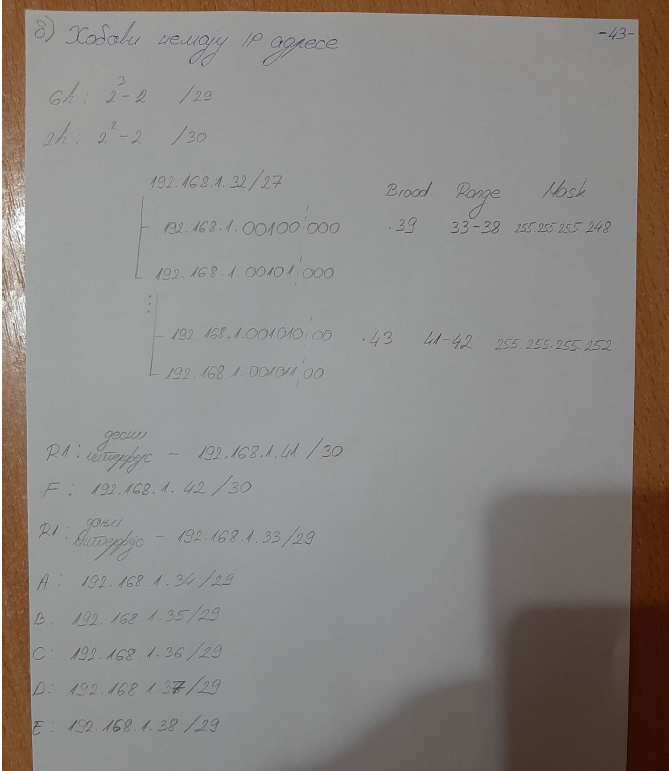 б) Хабови немају IP адресе
-43-
6h: 2³-2 /29
2h: 2²-2 /30
192.168.1.32/27 Broad Range Mask
192.168.1.00100 000 .39 33-38 255.255.255.248
192.168.1.00101 000
192.168.1.001010 00 .43 41-42 255.255.255.252
192.168.1.001011 00
R1: десни интерфејс - 192.168.1.41/30
F: 192.168.1.42/30
R1: доњи интерфејс - 192.168.1.33/29
A: 192.168.1.34/29
B: 192.168.1.35/29
C: 192.168 1.36/29
D: 192.168 1.37/29
E: 192.168.1.38/29